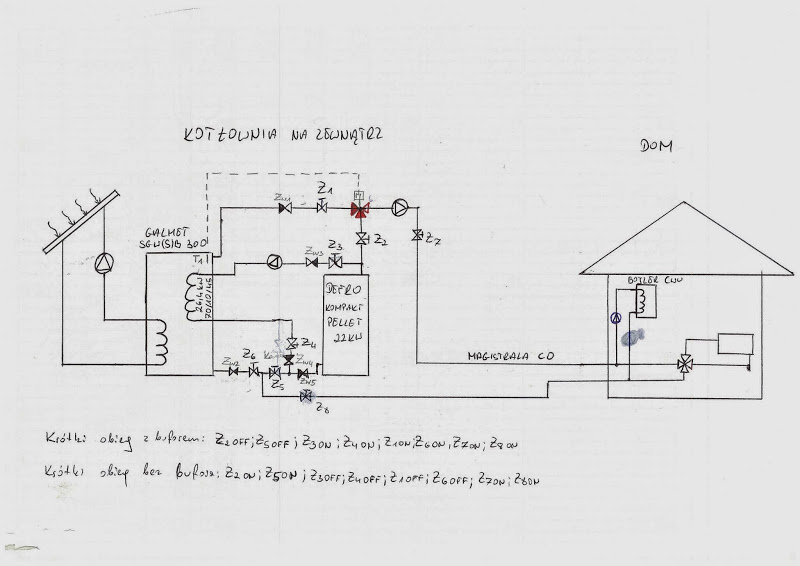 KOTŁOWNIA NA ZEWNĄTRZ
DOM
Zw1
Z1
GALMET
SGW(S)B 300
T1
M
Z2
Z7
Zw3
Z3
26,4 kW
70/10/45
DEFRO
KOMPAKT
PELLET
22KW
BOJLER CWU
Z4
Zw2
Z6
Zw4
Z5
Zw5
Z8
MAGISTRALA CO
Krótki obieg z buforem: Z2OFF; Z5OFF; Z3ON; Z4ON; Z1ON; Z6ON, Z7ON; Z8ON
Krótki obieg bez bufora: Z2ON; Z5ON; Z3OFF; Z4OFF; Z1OFF; Z6OFF; Z7ON; Z8ON